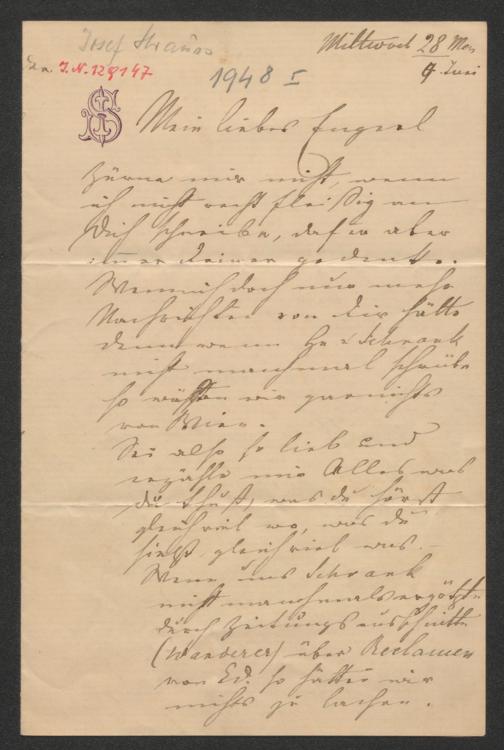 Josef Strauss
Mittwoch 28 Mai
I.N. 129147
9 Juni
1948 I
JS
Mein liebes Engerl
Zürne mir nicht, wenn
ich nicht recht fleißig an
Dich schreibe, dafür aber
immer Deiner gedenke.
Wenn ich doch nur mehr
Nachrichten von Dir hätte
denn wenn Hr v Schrank
nicht manchmal schriebe
so wüßten wir garnichts
von Wien.
Sei also so lieb und
erzähle mir Alles was
du thust, was du hörst
gleichviel wo, was du
siehst gleichviel was.
Wenn uns Schrank
nicht manchmal ergötzte
durch Zeitungsausschnitte
(Wanderer) über Reclamen
von Ed. so hätten wir
nichts zu lachen.